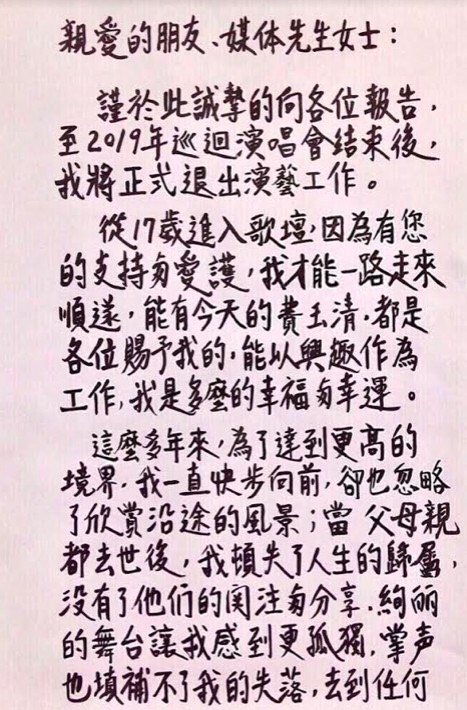 親愛的朋友、媒体先生女士：
謹於此誠摯的向各位報告，
至2019年巡迴演唱會結束後，
我將正式退出演藝工作。
從17歲進入歌壇，因為有您
的支持匆愛護，我才能一路走來
順遂，能有今天的費玉清，都是
各位賜予我的，能以興趣作為
工作，我是多麼的幸福匆幸運。
這麼多年來，為了達到更高的
境界，我一直快步向前，卻也忽略
了欣賞沿途的風景；當父母親
都去世後，我頓失了人生的歸屬，
没有了他们的関注匆分享，絢丽
的舞台讓我感到更孤獨，掌声
也填補不了我的失落，去到任何